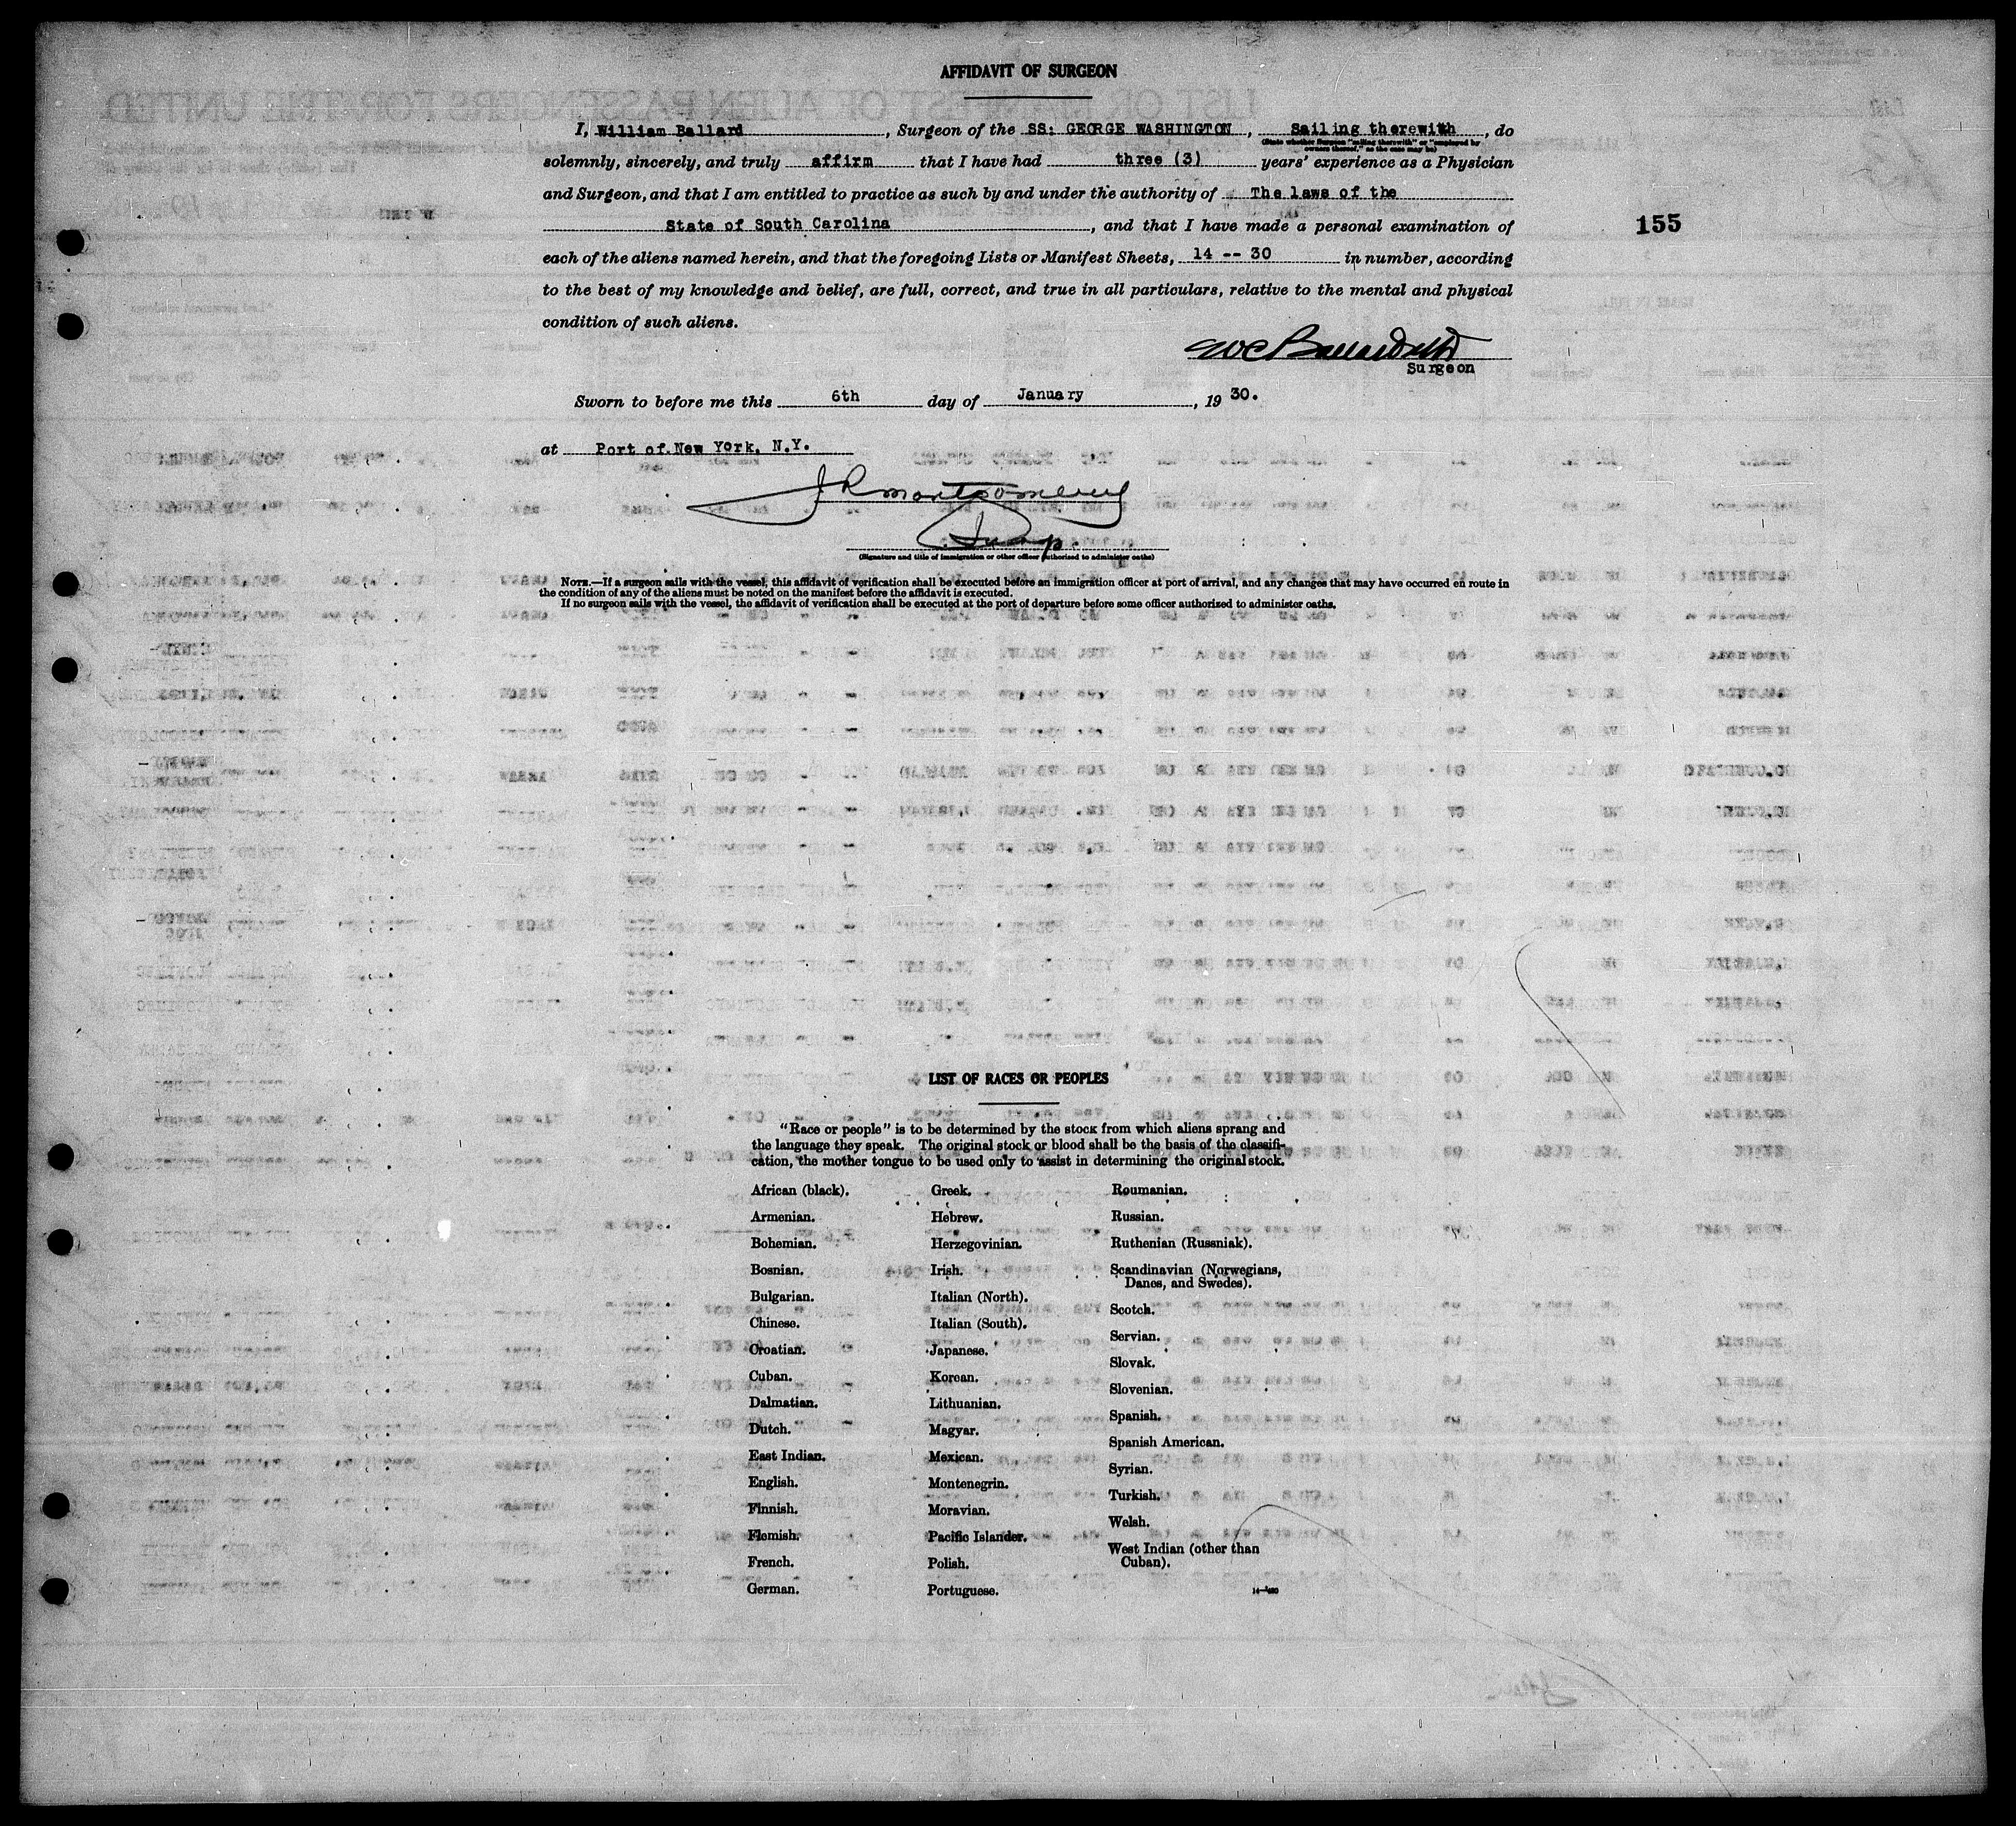 AFFIDAVIT OF SURGEON
I, William Ballard, Surgeon of the SS: GEORGE WASHINGTON, Sailing therewith, do
(State whether Surgeon "sailing therewith" or "employed by
owners thereof," as the case may be)
solemnly, sincerely, and truly affirm that I have had three (3) years' experience as a Physician
and Surgeon, and that I am entitled to practice as such by and under the authority of The laws of the
State of South Carolina, and that I have made a personal examination of
155
each of the aliens named herein, and that the foregoing Lists or Manifest Sheets, 14 -- 30 in number, according
to the best of my knowledge and belief, are full, correct, and true in all particulars, relative to the mental and physical
condition of such aliens.
WC Ballard MD
Surgeon
Sworn to before me this 6th day of January, 19 30.
at Port of New York, N.Y.
JR Montgomery
Insp.
(Signature and title of immigration or other officer authorized to administer oaths)
NOTE.—If a surgeon sails with the vessel, this affidavit of verification shall be executed before an immigration officer at port of arrival, and any changes that may have occurred en route in
the condition of any of the aliens must be noted on the manifest before the affidavit is executed.
If no surgeon sails with the vessel, the affidavit of verification shall be executed at the port of departure before some officer authorized to administer oaths.
LIST OF RACES OR PEOPLES
"Race or people" is to be determined by the stock from which aliens sprang and
the language they speak. The original stock or blood shall be the basis of the classifi-
cation, the mother tongue to be used only to assist in determining the original stock.
African (black).
Armenian.
Bohemian.
Bosnian.
Bulgarian.
Chinese.
Croatian.
Cuban.
Dalmatian.
Dutch.
East Indian.
English.
Finnish.
Flemish.
French.
German.
Greek.
Hebrew.
Herzegovinian.
Irish.
Italian (North).
Italian (South).
Japanese.
Korean.
Lithuanian.
Magyar.
Mexican.
Montenegrin.
Moravian.
Pacific Islander.
Polish.
Portuguese.
Roumanian.
Russian.
Ruthenian (Russniak).
Scandinavian (Norwegians,
Danes, and Swedes).
Scotch.
Servian.
Slovak.
Slovenian.
Spanish.
Spanish American.
Syrian.
Turkish.
Welsh.
West Indian (other than
Cuban).